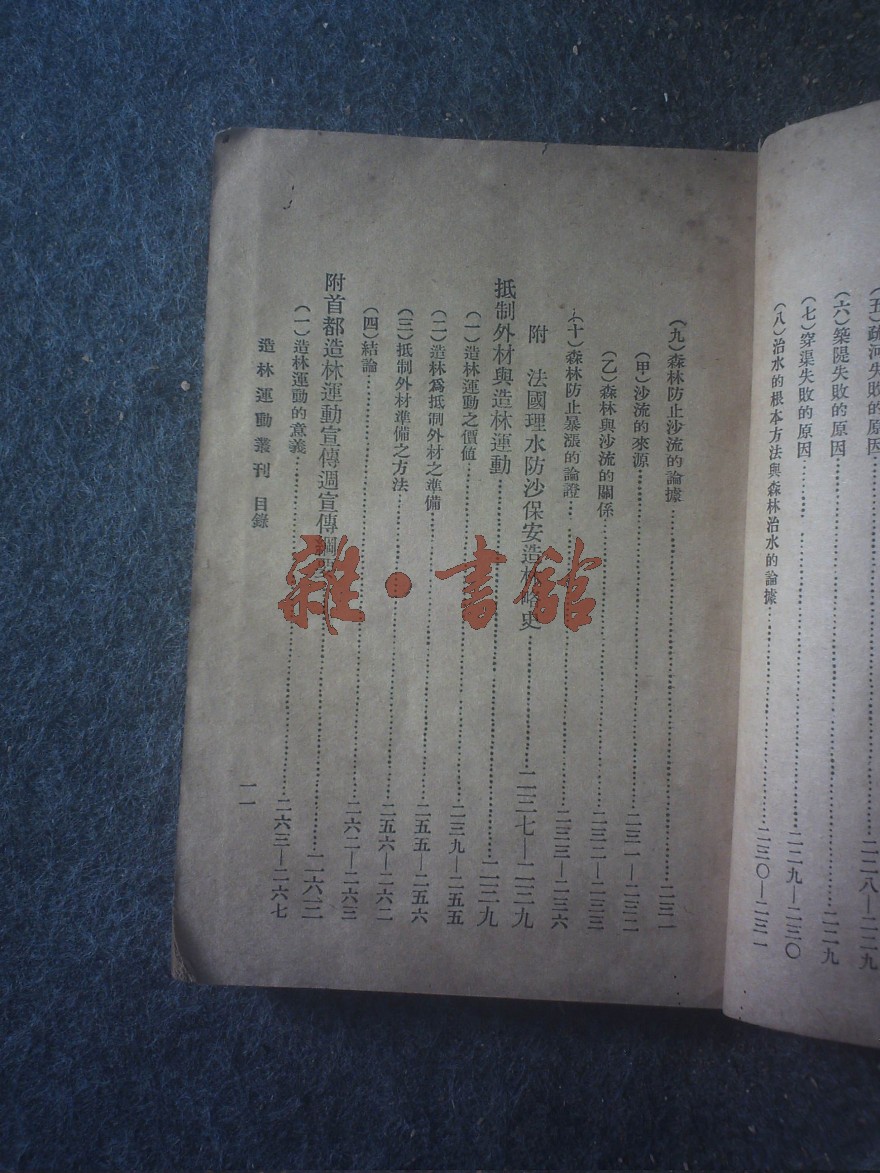 (五)疏河失敗的原因……二二八—二二九
(六)築隄失敗的原因……二二九
(七)穿渠失敗的原因……二二九—二三〇
(八)治水的根本方法與森林治水的論據……二三〇—二三一
(九)森林防止沙流的論據……二三一
(甲)沙流的來源……二三一—二三二
(乙)森林與沙流的關係……二三二—二三三
(十)森林防止暴漲的論證……二三三—二三六
附 法國理水防沙保安造林略史……二三七—二三九
抵制外材與造林運動……二三九
(一)造林運動之價值……二三九—二五五
(二)造林爲抵制外材之準備……二五五—二五六
(三)抵制外材準備之方法……二五六—二六二
(四)結論……二六二—二六三
附首都造林運動宣傳週宣傳綱要……二六三
(一)造林運動的意義……二六三—二六七
造林運動叢刊 目錄
一一
雜·書館